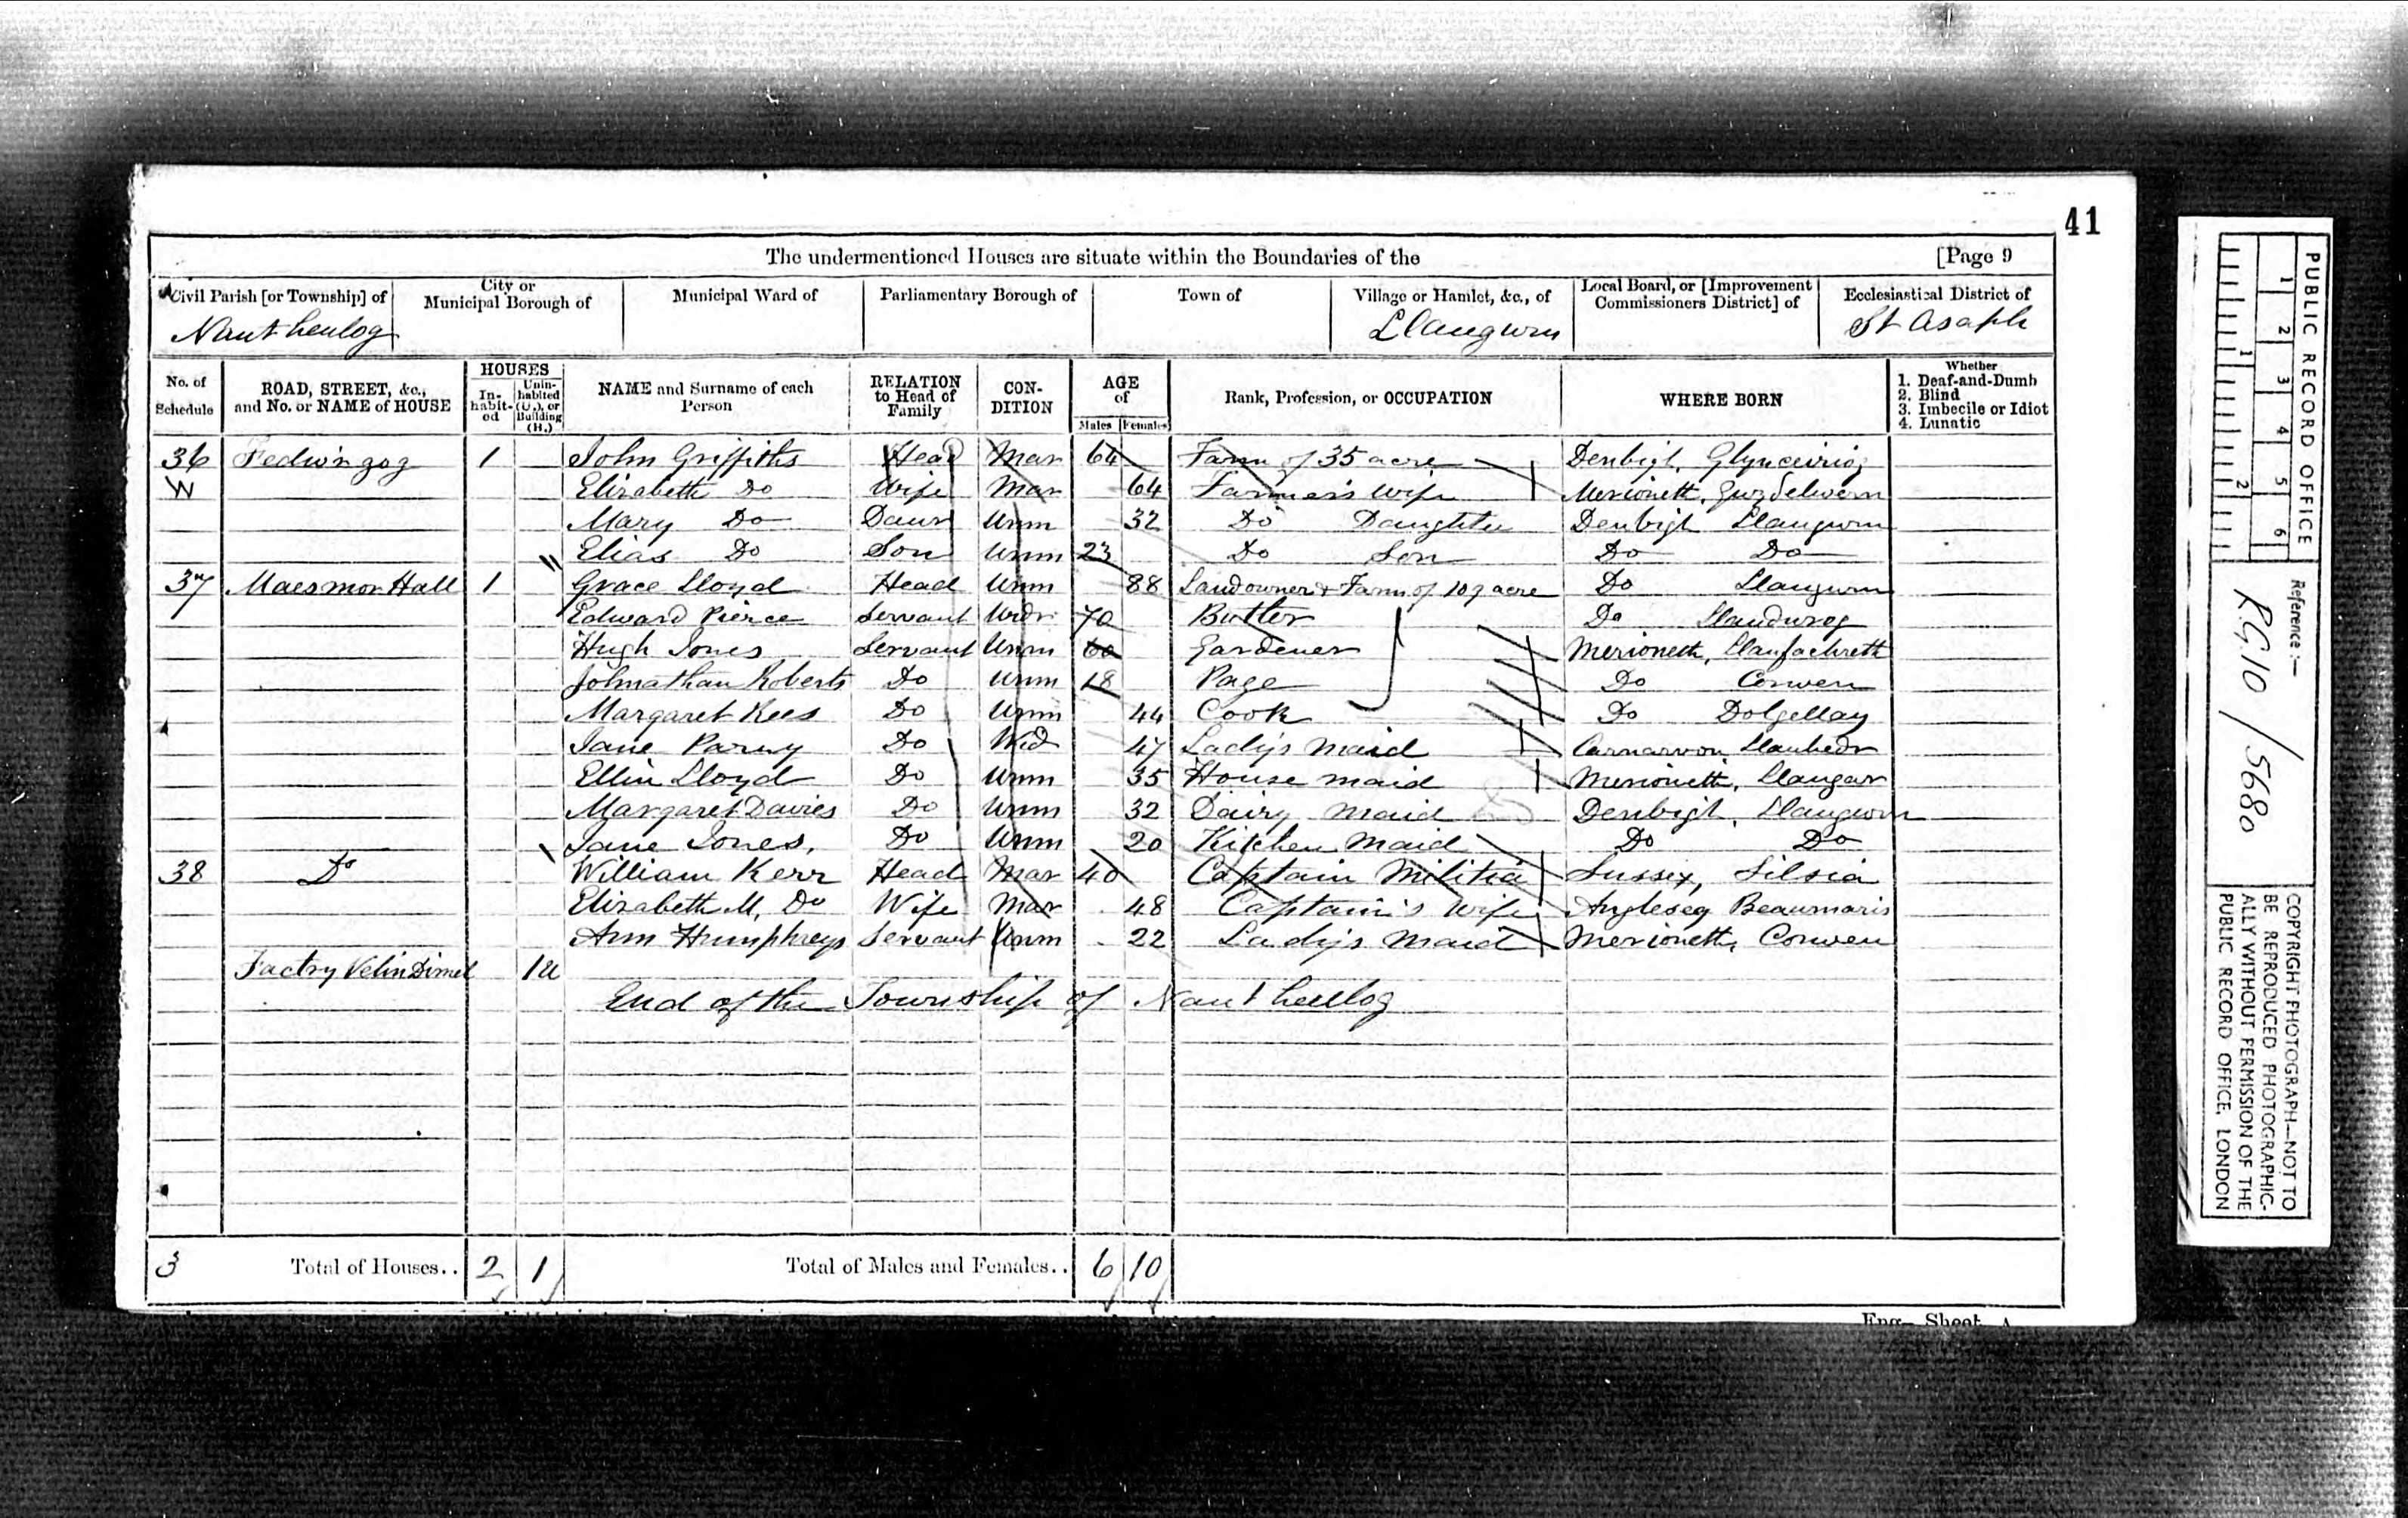 41
The undermentioned Houses are situate within the Boundaries of the [Page 9
Civil Parish [or Township] of
City or Municipal Borough of
Municipal Ward of
Parliamentary Borough of
Town of
Village or Hamlet, &c., of
Local Board, or [Improvement Commissioners District] of
Ecclesiastical District of
Nantheulog Llangwm St Asaph
No. of Schedule
ROAD, STREET, &c., and No. or NAME of HOUSE
HOUSES
In-habit-ed
Unin-habited (U.), or Building (B.)
NAME and Surname of each Person
RELATION to Head of Family
CON-DITION
AGE of
Males Females
Rank, Profession, or OCCUPATION
WHERE BORN
Whether
1. Deaf-and-Dumb
2. Blind
3. Imbecile or Idiot
4. Lunatic
36 Fedwingog 1 John Griffiths Head Mar 64 Farm of 35 acre Denbigh, Glynceiriog
W Elizabeth Do Wife Mar 64 Farmer's Wife Merioneth,
Mary Do Daur Unm 32 Do Daughter Denbigh Llangwm
Elias Do Son Unm 23 Do Son Do Do
37 Maesmor Hall 1 Grace Lloyd Head Unm 88 Landowner & Farm of 109 acre Do Llangwm
Edward Pierce Servant Widr 70 Butler Do
Hugh Jones Servant Unm 60 Gardener Merioneth, Llanfachreth
Johnathan Roberts Do Unm 18 Page Do Corwen
Margaret Rees Do Unm 44 Cook Do Dolgellay
Jane Parry Do Wid 47 Lady's Maid Carnarvon Llanbedr
Ellin Lloyd Do Unm 35 House maid Merioneth, Llangar
Margaret Davies Do Unm 32 Dairy maid Denbigh, Llangwm
Jane Jones, Do Unm 20 Kitchen Maid Do Do
38 Do William Kerr Head Mar 40 Captain Militia Sussex, Silsia
Elizabeth M, Do Wife Mar 48 Captain's Wife Anglesey Beaumaris
Ann Humphreys Servant Unm 22 Lady's Maid Merioneth, Corwen
Factry Velin Dimel 1u
End of the Township of Nantheulog
3 Total of Houses.. 2 1 Total of Males and Females.. 6 10
Eng— Sheet A
PUBLIC RECORD OFFICE
1 2 3 4 5 6
1 2
Reference:—
R.G. 10 / 5680
COPYRIGHT PHOTOGRAPH—NOT TO
BE REPRODUCED PHOTOGRAPHIC-
ALLY WITHOUT PERMISSION OF THE
PUBLIC RECORD OFFICE, LONDON